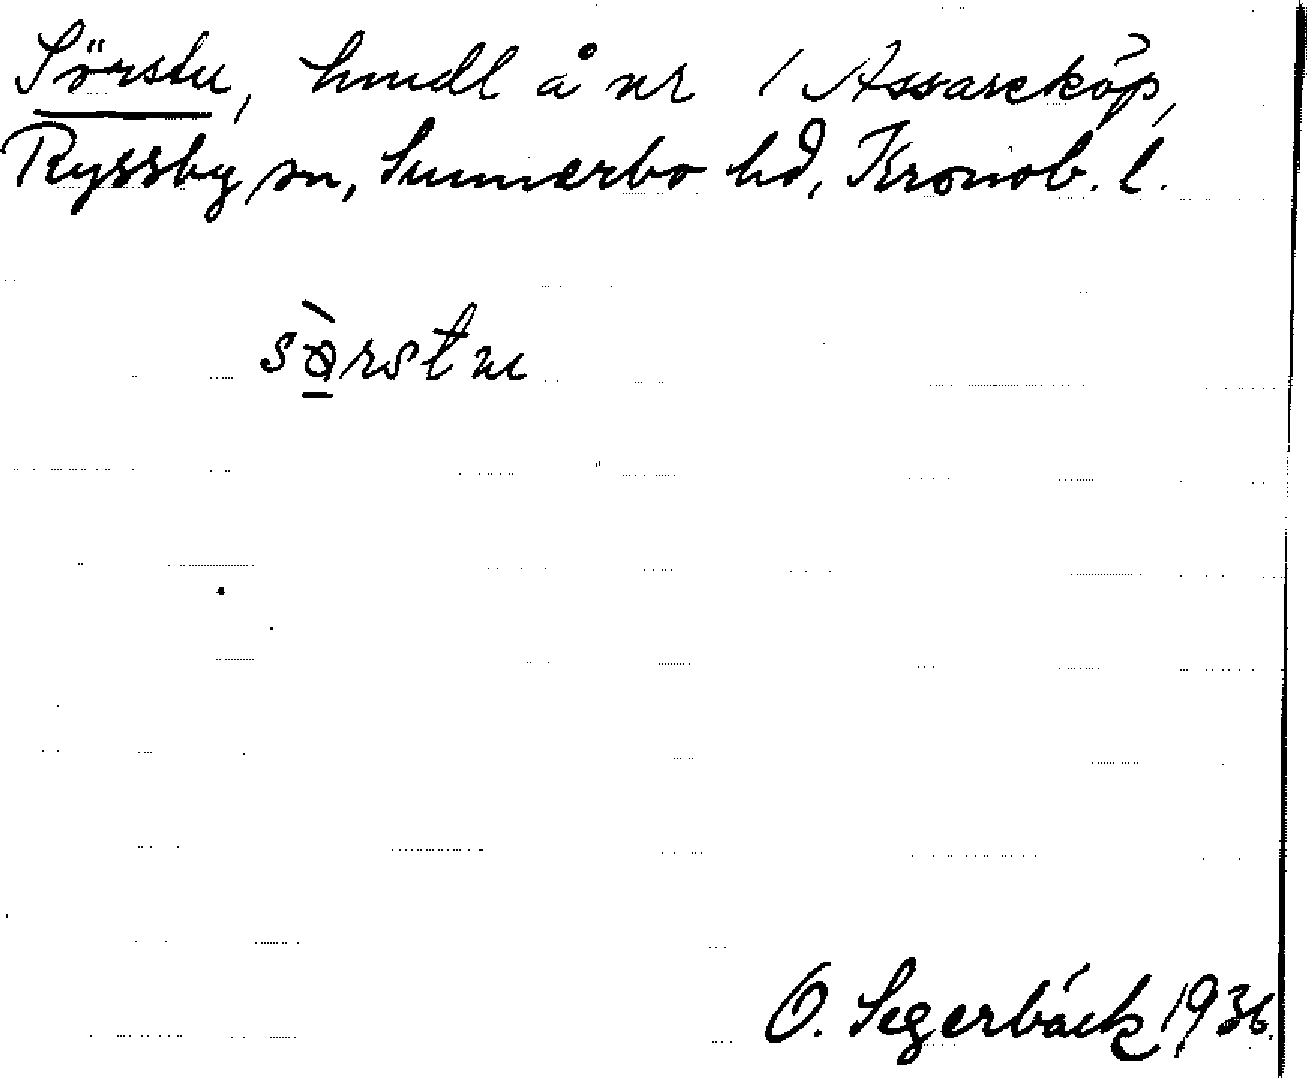 Sörstu, hmdl å nr 1 Assareköp,
Ryssby sn, Sunnerbo hd, Kronob. l.
sɵ̀rstu
O. Segerbäck 1936.